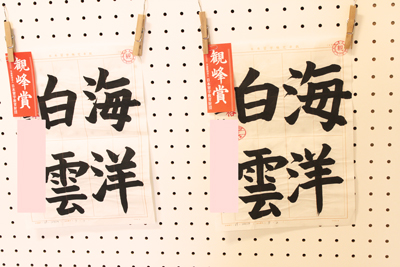 観峰賞
海洋
白雲
観峰賞
海洋
白雲